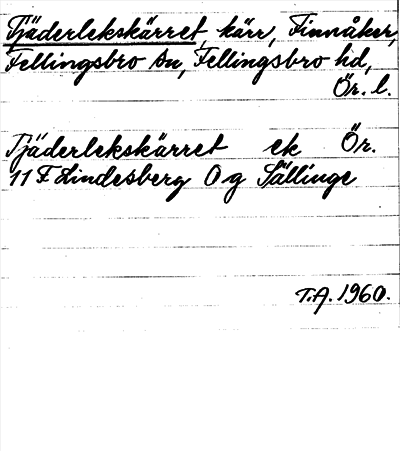 Tjäderlekskärret, kärr, Finnåker,
Fellingsbro sn, Fellingsbro hd,
Ör. l.
Tjäderlekskärret ek Ör.
11 F Lindesberg 0 g Sällinge
T.A. 1960.